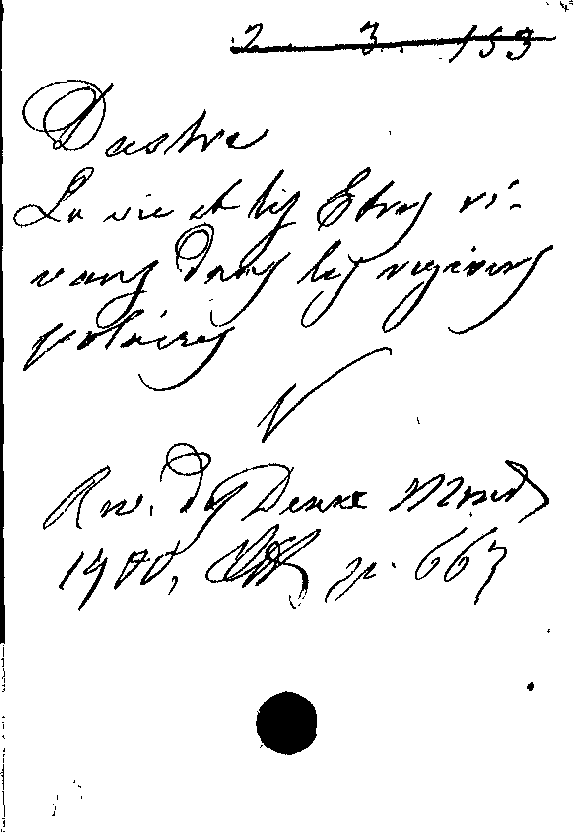 2 3 153
Dastre
La vie et les Etres vi-
vants dans les régions
polaires
Rev. des Deux Mondes
1900, p. 667